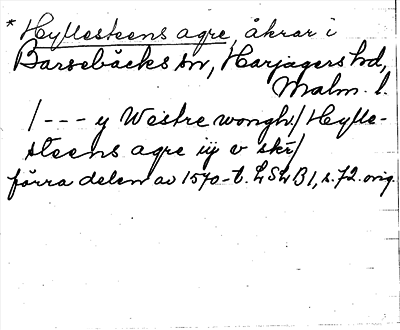 * Hyllesteens agre, åkrar i
Barsebäcks sn, Harjagers hd,
Malm. l.
/--- y Westre wongh/ Hylle-
steens agre iij v skr/
förra delen av 1570-t. LSLB1, s. 72. orig.